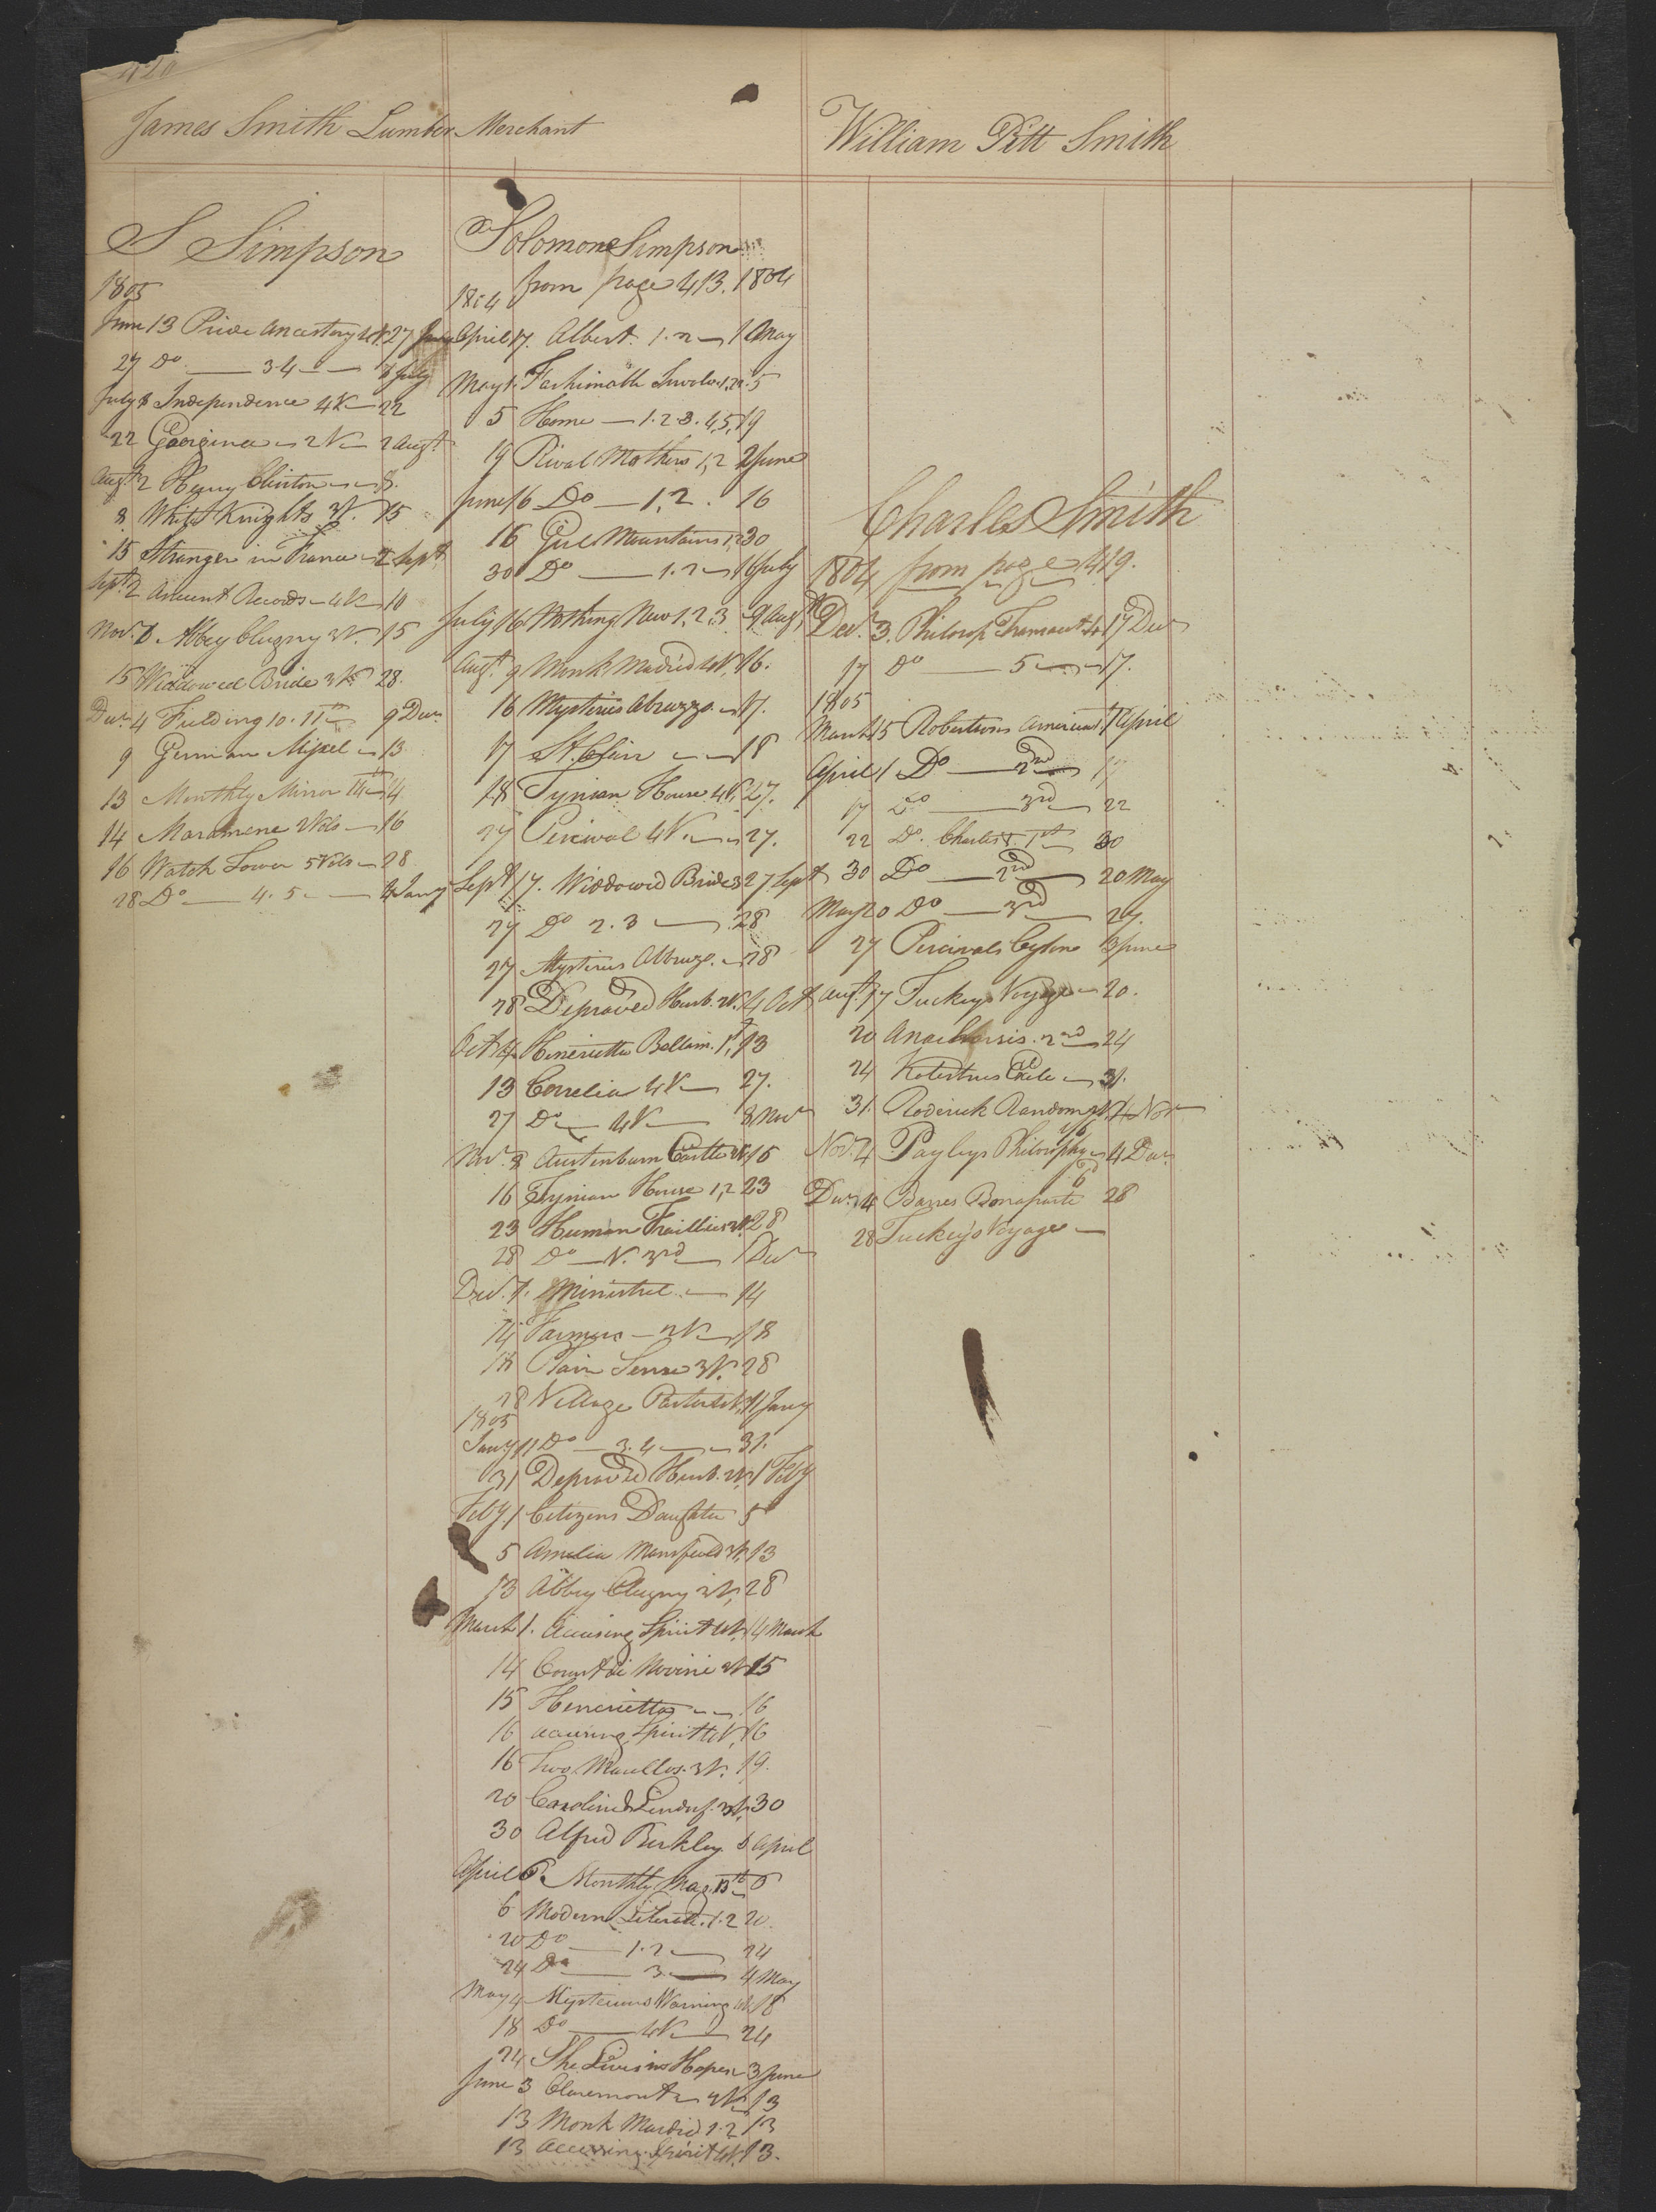 420
James Smith Lumber Merchant
S Simpson
1805
June 13 Pride Ancestry 4V. 27 June
27 Do — 3.4 — 8 July
July 8 Independence 4V — 22
22 Georgina — 2V — 2 Augt
Augt 2 Henry Clinton — 8.
8 White Knights 3V. 15
15 Stranger in France — 2 Sept
Sept 2 Ancient Records — 4V — 10
Novr. 8 Abbey Clugny 3V. 15
15 Widdowed Bride 3V 28.
Decr 4 Feilding 10. 11th — 9 Decr
9 German Misel — 13
13 Monthly Mirror 14
14 Maramene 2Vols — 16
16 Watch Tower 5Vols — 28
28 Do — 4. 5 — 4 Jany
Solomon Simpson
from page 413. 1804
1804
April 17. Albert. 1. 2 — 1 May
May 1. Fashionable 1,2. 5
5 Home — 1. 2. 3. 4, 5, 19
19 Rival Mothers 1, 2 2 June
June 16 Do — 1, 2. 16
16 Mountains 1,2 30
30 Do — 1. 2 — 16 July
July 16 Nothing New 1, 2, 3 9 Augt
Augt. 9 Monk Madrid 4V. 16.
16 Mysteries Abruzzo — 17.
17 St. Clair — 18
18 Tynian House 4V. 27.
27 Percival 4V. — 27.
Sept 17. Widdowed Bride 3 27 Sept
27 Do 2. 3 — 28
27 Mysteries Abbruzo. — 28
28 Depraved Husb. 2V. 4 Oct
Oct 4 Henerietta Bellam. 1st, 13
13 Correlia 4V — 27.
27 Do — 4V — 8 Novr
Novr. 8 Austenburn Castle 2V. 16
16 Tynian House 1, 2 23
23 Human Frailties 3V. 28
28 Do — V. 3rd — 1 Decr
Decr. 1. Minstrel — 14
14 Farmers — 2V — 18
18 Plain Sense 3V. 28
28 Village Pastor 4V. 11 Jany
1805
Jany 11 Do — 3. 4 — 31.
31 Depraved Husb. 2V. 1 Feby
Feby 1 Citizens Daughter 5
5 Amelia Mansfield 3V. 13
13 Abbey Clugny 3V. 28
March 1. Accusing Spirit 4V. 14 March
14 Count di Novini 3V. 15
15 Henerietta — 16
16 Accusing Spirit 4V. 16
16 Two Marillos. 3V. 19.
20 Caroline Lindsf. 3V. 30
30 Alfred Berkley 6 April
April 6. Monthly Mag. 13th — 6
6 Modern Literat. 1. 2 20.
20 Do — 1. 2 — 24
24 Do — 3 — 4 May
May 4 Mysterious Warning 4V. 18
18 Do — 4V — 24
24 She Lives in Hopes — 3 June
June 3 Claremont — 2V. 13
13 Monk Madrid 1. 2 13
13 Accusing Spirit 4V. 13.
William Pitt Smith
Charles Smith
1804 from page 419.
Decr. 3. Philosop. Transact 4 17 Decr
17 Do — 5 — 17.
1805
March 15 Robertsons America 1 1 April
April 1 Do — 2nd — 17
17 Do — 3rd — 22
22 Do. Charles V. 1st — 30
30 Do — 2nd — 20 May
May 20 Do — 3rd — 27.
27 Percivals Ceylone 13 June
Augt. 17 Tuckeys Voyage — 20.
20 Anacharsis. 2nd — 24
24 Kotzebues Exile — 31.
31. Roderick Random 2V. 4 Nov
Novr. 4 Payleys Philosophy — 4 Decr.
Decr. 4 Barres Bonaparte 28
28 Tuckey's Voyage —